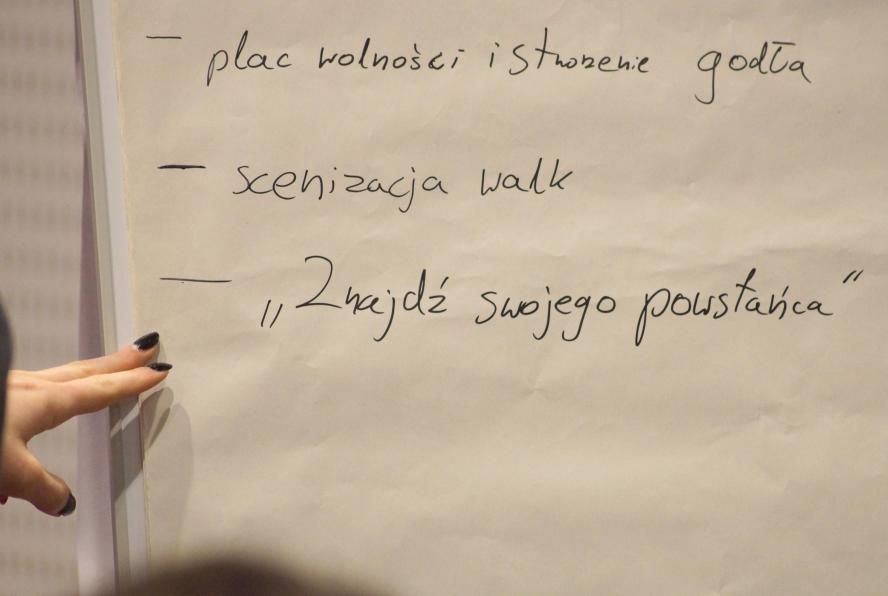 — plac wolności i stworzenie godła
— scenizacja walk
— „Znajdź swojego powstańca”